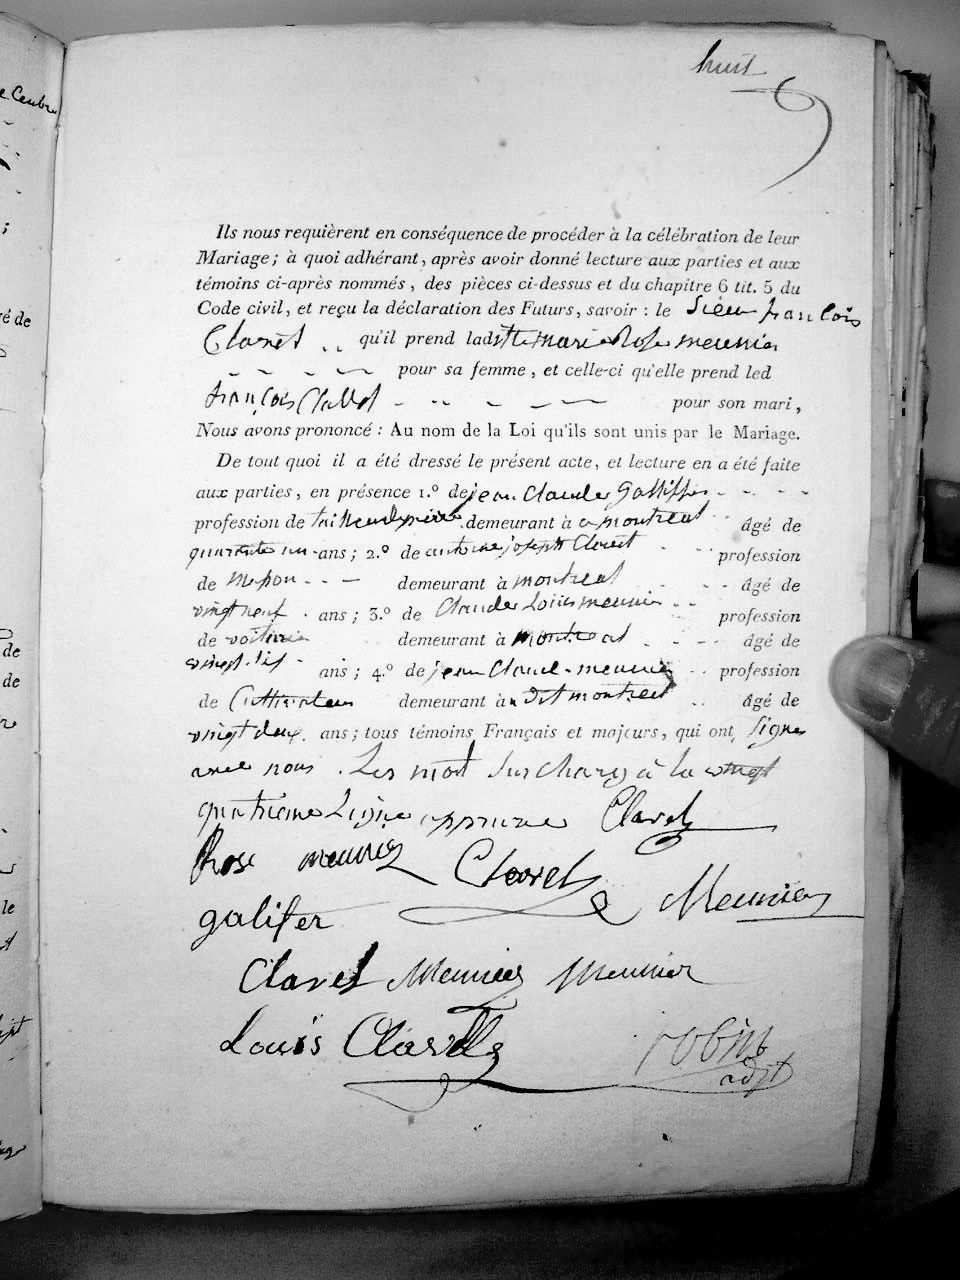 huit
Ils nous requièrent en conséquence de procéder à la célébration de leur
Mariage; à quoi adhérant, après avoir donné lecture aux parties et aux
témoins ci-après nommés, des pièces ci-dessus et du chapitre 6 tit. 5 du
Code civil, et reçu la déclaration des Futurs, savoir : le Sieur françois
Clavet qu'il prend ladite marie Rose meunier
pour sa femme, et celle-ci qu'elle prend led
françois Clavel pour son mari,
Nous avons prononcé : Au nom de la Loi qu'ils sont unis par le Mariage.
De tout quoi il a été dressé le présent acte, et lecture en a été faite
aux parties, en présence 1.º de jean Claude
profession de demeurant à montreal âgé de
quarante un ans; 2.º de antoine joseph Clavet profession
de maçon demeurant à montreal âgé de
vingt neuf ans; 3.º de Claude Louis meunier profession
de demeurant à montreal âgé de
vingt sept ans; 4.º de jean Claude meunier profession
de Cultivateur demeurant à dit montreal âgé de
vingt deux ans; tous témoins Français et majeurs, qui ont signé
avec nous. Les mots Surchargé à la vingt
quatrieme Ligne approuve Clavel
Rose meunier Clavel Meunier
galifer
Clavel Meunier Meunier
Louis Clavel robin
adjt